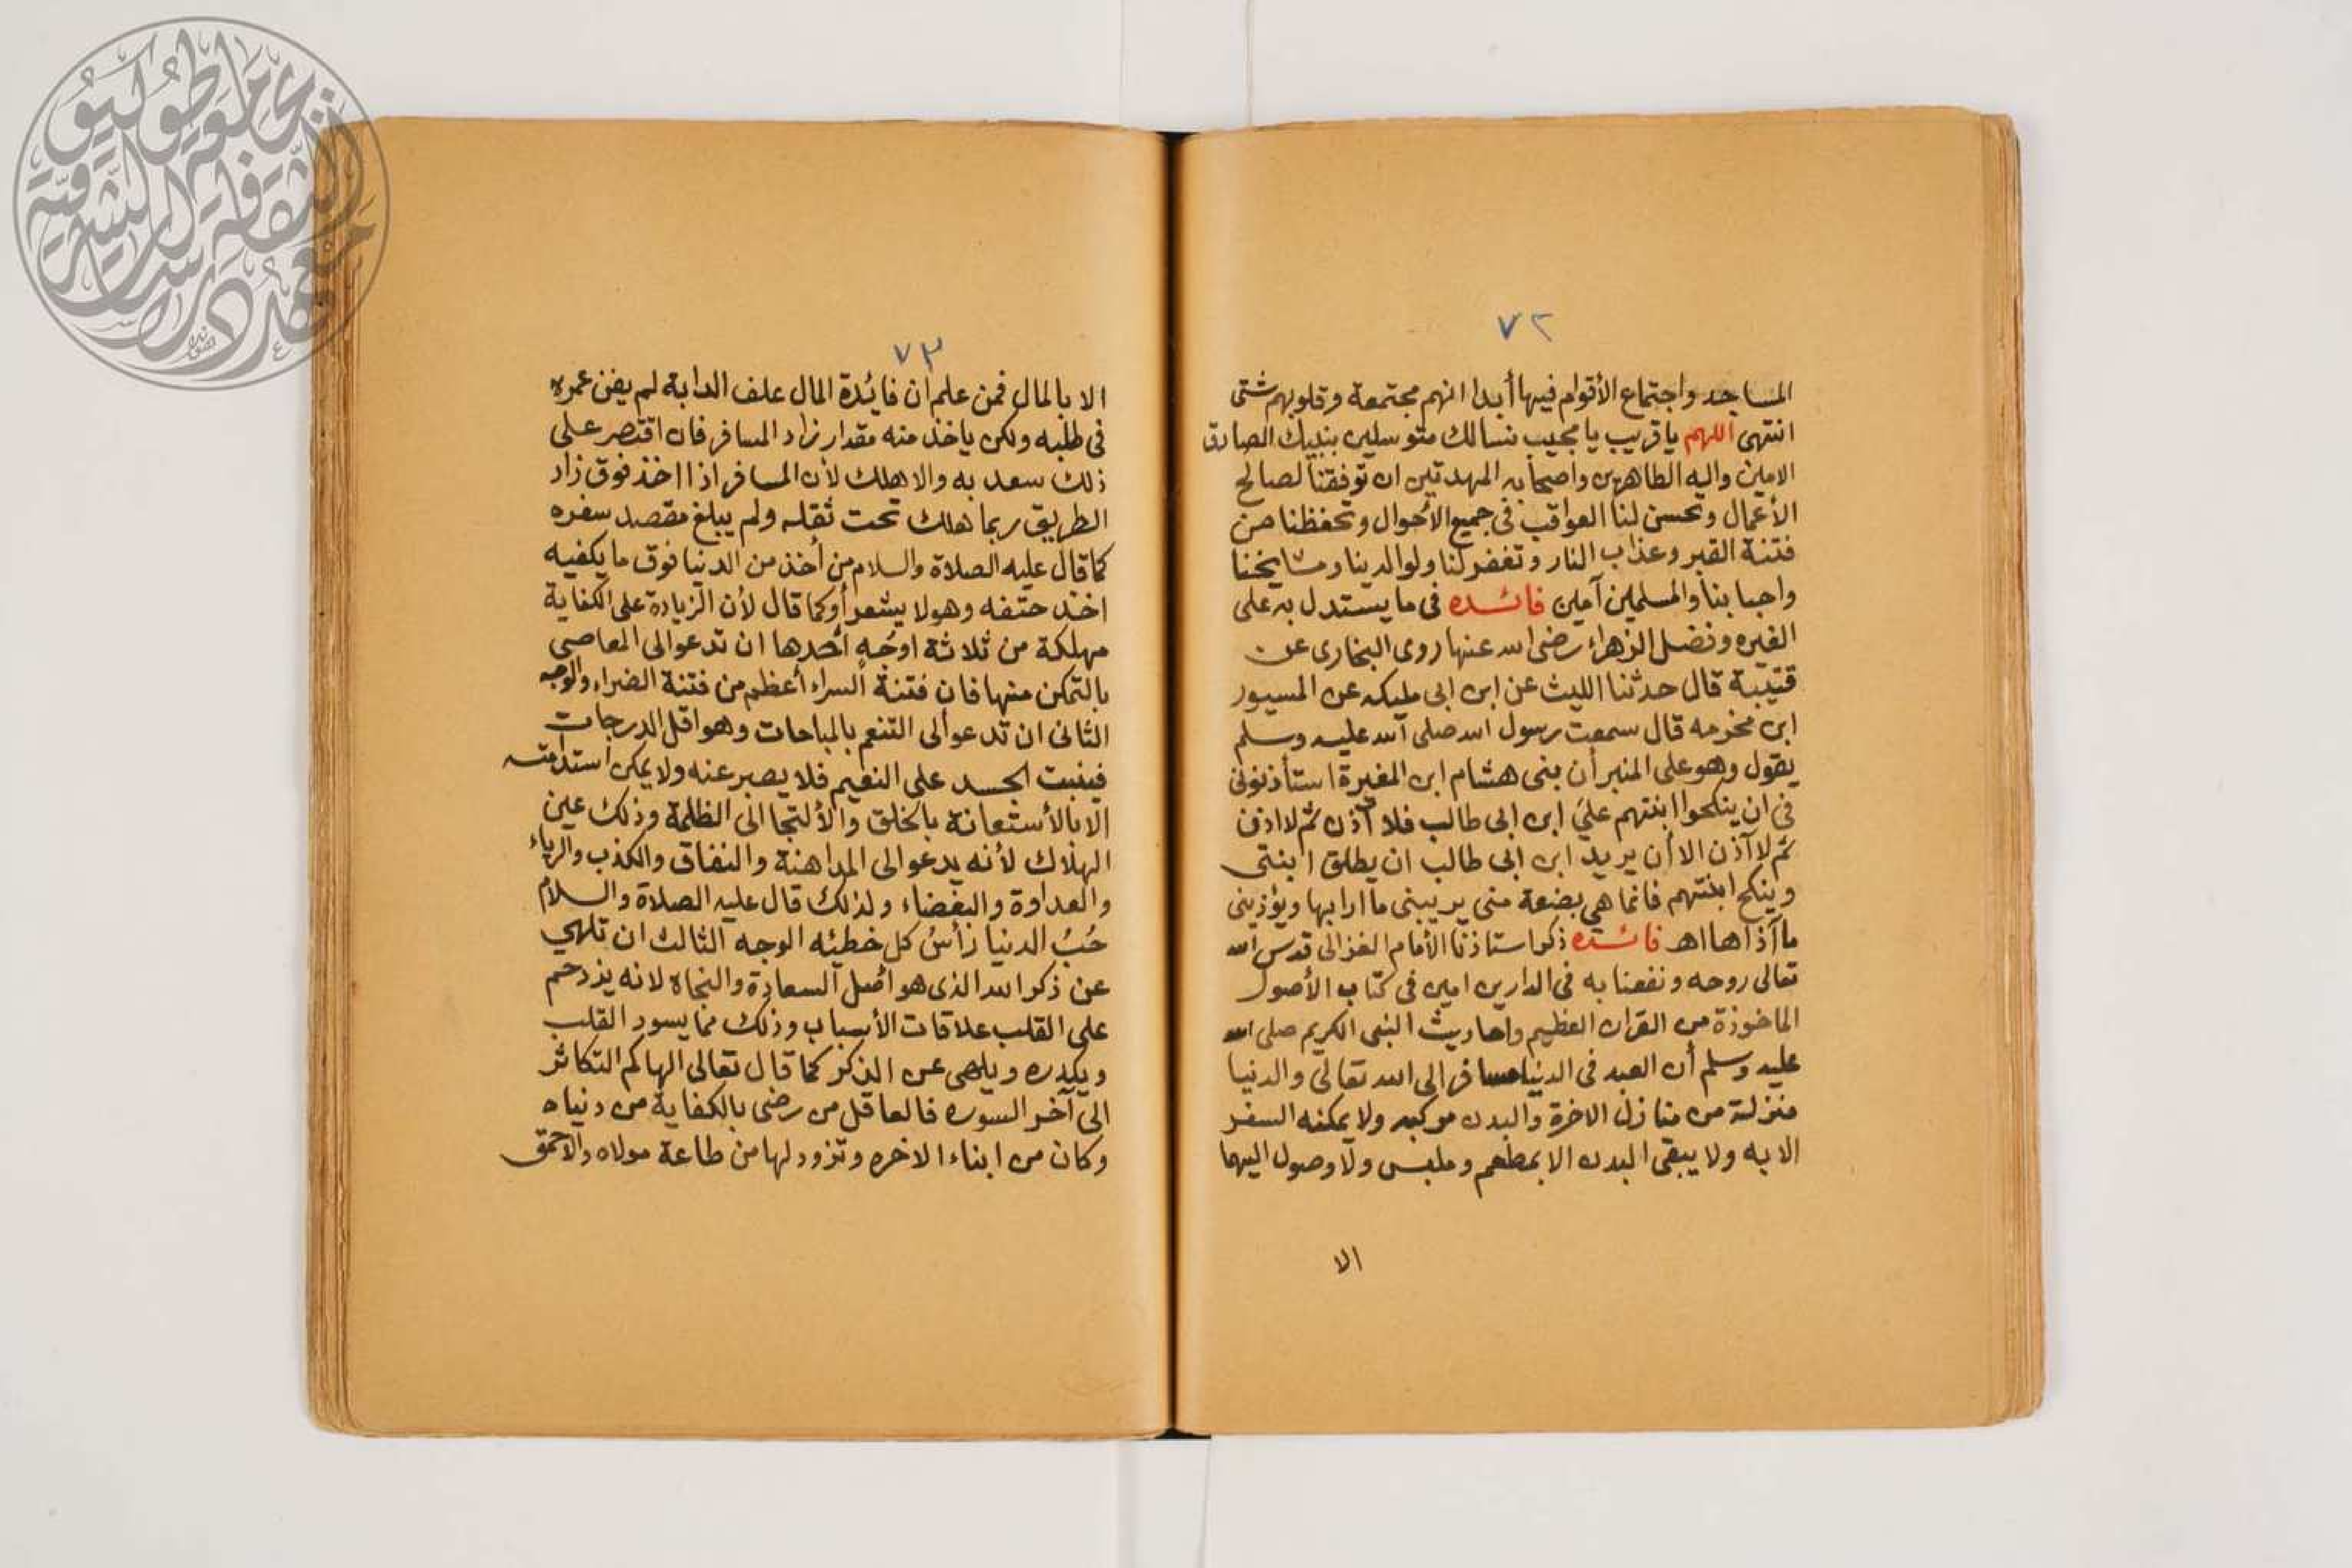 ٧٢
المساجد واجتماع الأقوام فيها أبدا انهم مجتمعة وقلوبهم شتى
انتهى اللهم يا قريب يا مجيب نسالك متوسلين بنبيك الصادق
الامين واليه الطاهرين واصحابه المهديتين ان توفقنا لصالح
الأعمال وتحسن لنا العواقب في جميع الأحوال وتحفظنا من
فتنة القبر وعذاب النار وتغفر لنا ولوالدينا ومشايخنا
واحبابنا والمسلمين آمين فائده في ما يستدل به على
الغيره وفضل الزهراء رضى الله عنها روى البخارى عن
قتيبة قال حدثنا الليث عن ابن ابى مليكه عن المسيور
ابن مخرمه قال سمعت رسول الله صلى الله عليه وسلم
يقول وهو على المنبر أن بنى هشام ابن المغيرة استأذنونى
فى ان ينكحوا ابنتهم علي ابن ابى طالب فلا آذن ثم لا اذن
ثم لا آذن الا أن يريد ابن ابى طالب ان يطلق ابنتى
وينكح ابنتهم فانما هي بضعة منى يريبنى ما ارابها ويؤذينى
ما آذاها اهـ فائده ذكر استاذنا الأمام الغزالى قدس الله
تعالى روحه ونفعنا به فى الدارين امين فى كتاب الأصول
الماخوذة من القران العظيم واحاديث النبى الكريم صلى الله
عليه وسلم أن العبد فى الدنيا مسافر الى الله تعالى والدنيا
منزلة من منازل الاخرة والبدن مركبه ولا يمكنه السفر
الا به ولا يبقى البدن الا بمطعم وملبس ولا وصول اليهما
الا
٧٣
الا بالمال فمن علم ان فائدة المال علف الدابة لم يفن عمره
فى طلبه ولكن ياخذ منه مقدار زاد المسافر فان اقتصر على
ذلك سعد به والا هلك لأن المسافر اذا اخذ فوق زاد
الطريق ربما هلك تحت ثقله ولم يبلغ مقصد سفره
كما قال عليه الصلاة والسلام من أخذ من الدنيا فوق ما يكفيه
اخذ حتفه وهو لا يشعر أو كما قال لأن الزيادة على الكفاية
مهلكة من ثلاثة اوجه أحدها ان تدعو الى المعاصى
بالتمكن منها فان فتنة السراء أعظم من فتنة الضراء والوجه
الثانى ان تدعو ألى التنعم بالمباحات وهو اقل الدرجات
فينبت الجسد على النعيم فلا يصبر عنه ولا يمكن استدامته
الا بالأستعانة بالخلق والألتجا الى الظلمة وذلك عين
الهلاك لأنه يدعو الى المداهنة والنفاق والكذب والرياء
والعداوة والبغضاء ولذلك قال عليه الصلاة والسلام
حُبُ الدنيا رأسُ كل خطيئه الوجه الثالث ان تلهي
عن ذكر الله الذى هو أصل السعادة والنجاة لانه يزدحم
على القلب علاقات الأسباب وذلك مما يسود القلب
ويكدره ويلهى عن الذكر كما قال تعالى الهاكم التكاثر
الى آخر السوره فالعاقل من رضى بالكفاية من دنياه
وكان من ابناء الاخره وتزود لها من طاعة مولاه والاحمق